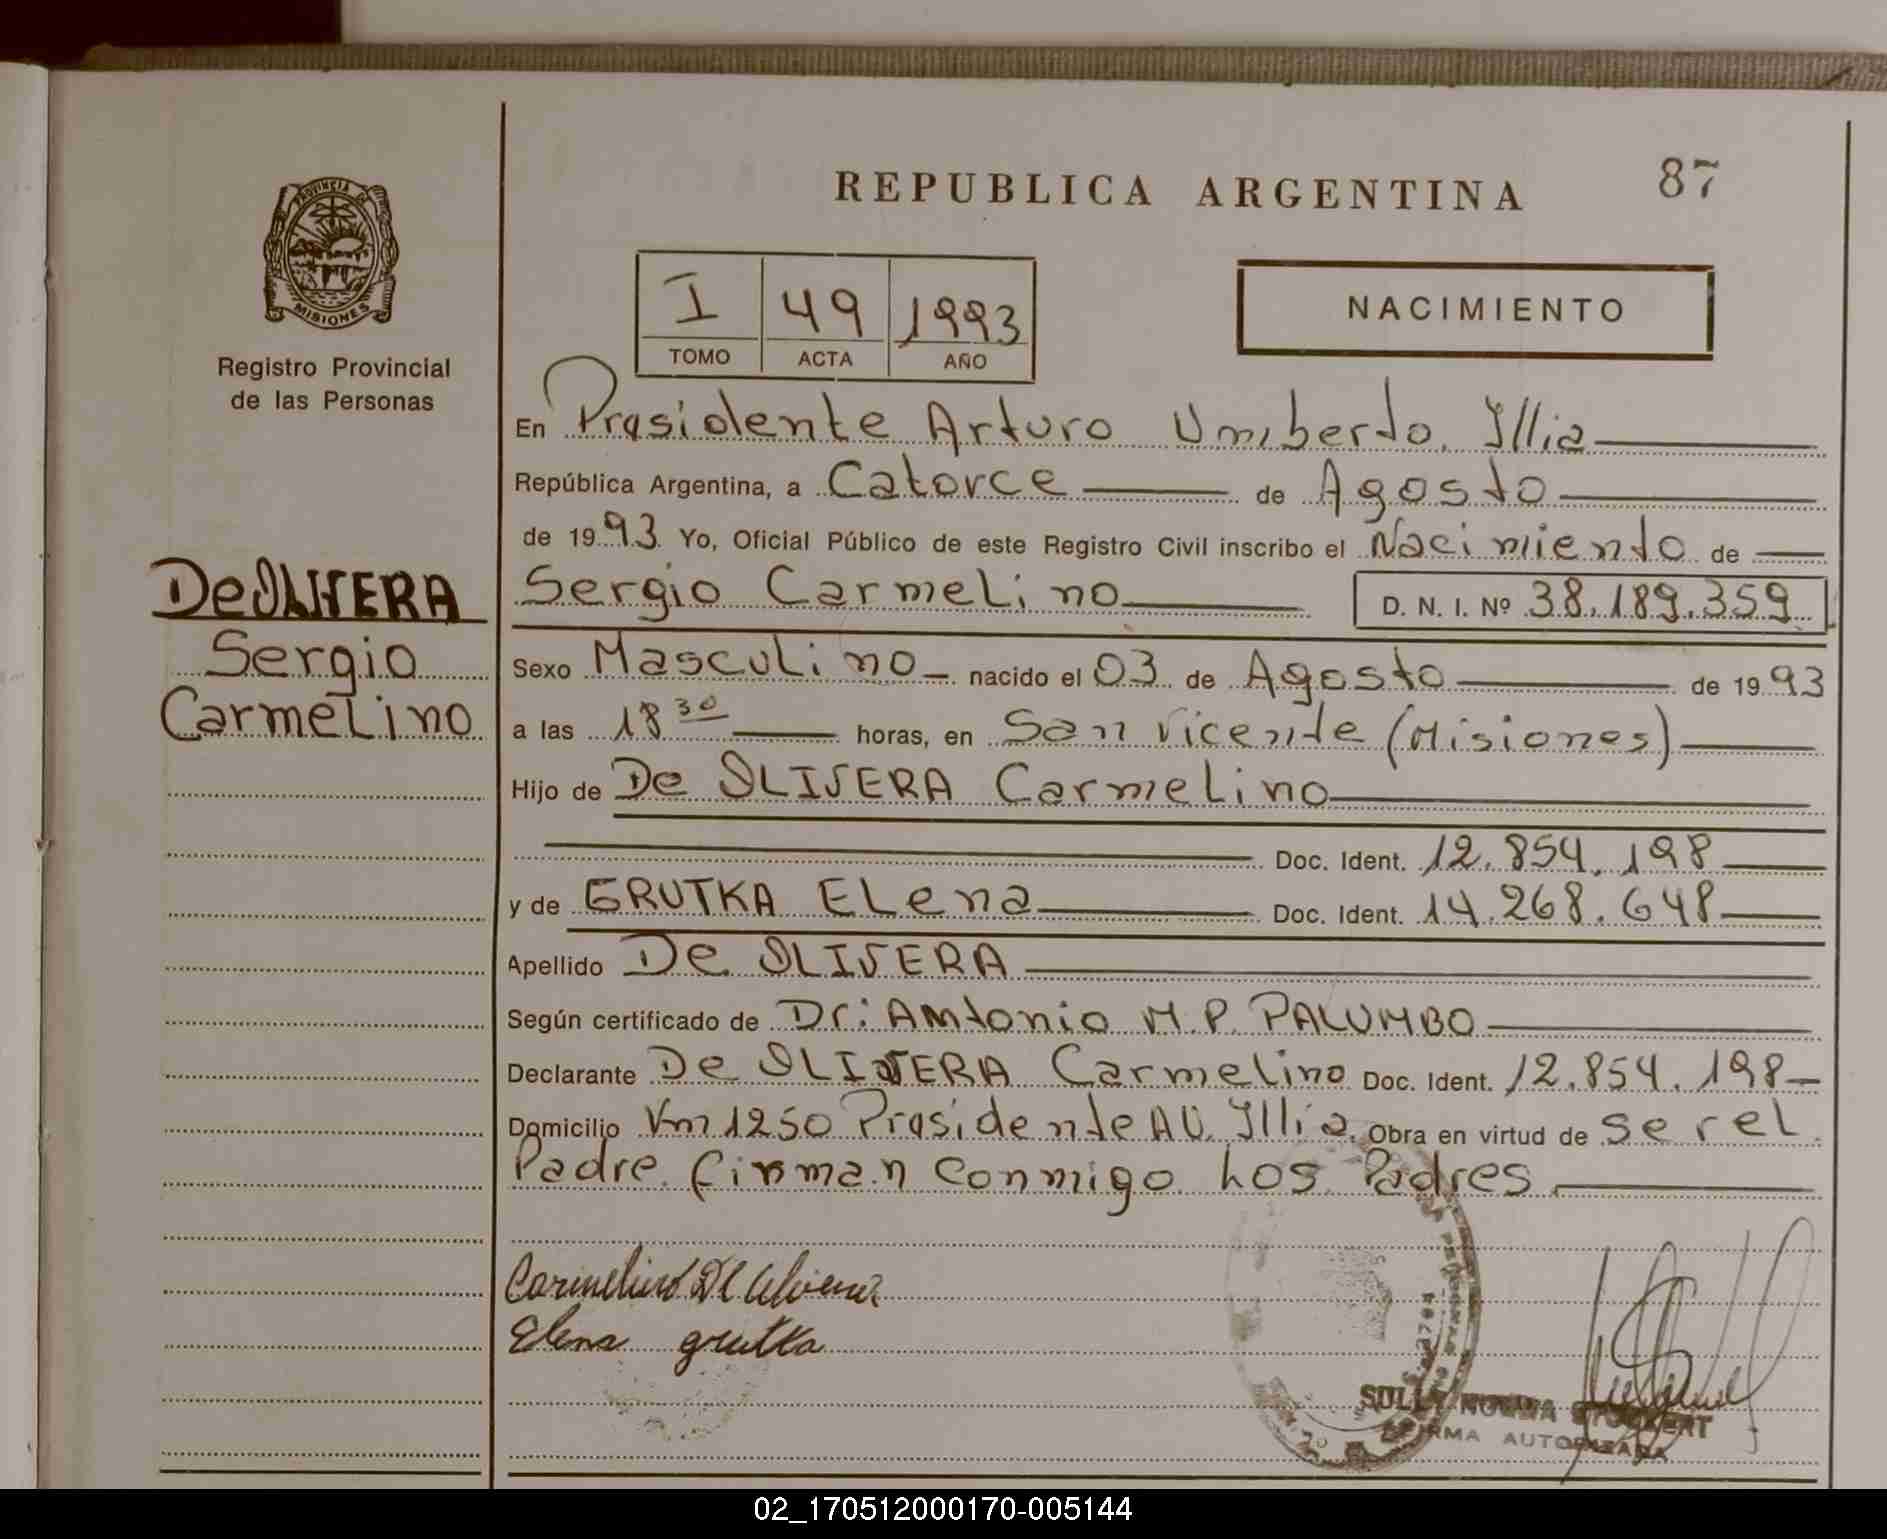 REPUBLICA ARGENTINA
87
PROVINCIA DE
MISIONES
Registro Provincial
de las Personas
I 49 1993
TOMO ACTA AÑO
NACIMIENTO
En Presidente Arturo Umberto Illia
República Argentina, a Catorce de Agosto
de 1993 Yo, Oficial Público de este Registro Civil inscribo el Nacimiento de
Sergio Carmelino D. N. I. Nº 38.189.359
De OLIVERA
Sergio
Carmelino
Sexo Masculino nacido el 03 de Agosto de 1993
a las 18 30 horas, en San Vicente (Misiones)
Hijo de De OLIVERA Carmelino
Doc. Ident. 12.854.198
y de GRUTKA ELena Doc. Ident. 14.268.648
Apellido De OLIVERA
Según certificado de Dr: AMtonio M.P. PALUMBO
Declarante De OLIVERA Carmelino Doc. Ident. 12.854.198
Domicilio Km 1250 Presidente A U. Illia. Obra en virtud de ser el
Padre. firman conmigo Los Padres
Carmelino De Olivera
Elena grutka
FIRMA AUTORIZADA
02_170512000170-005144